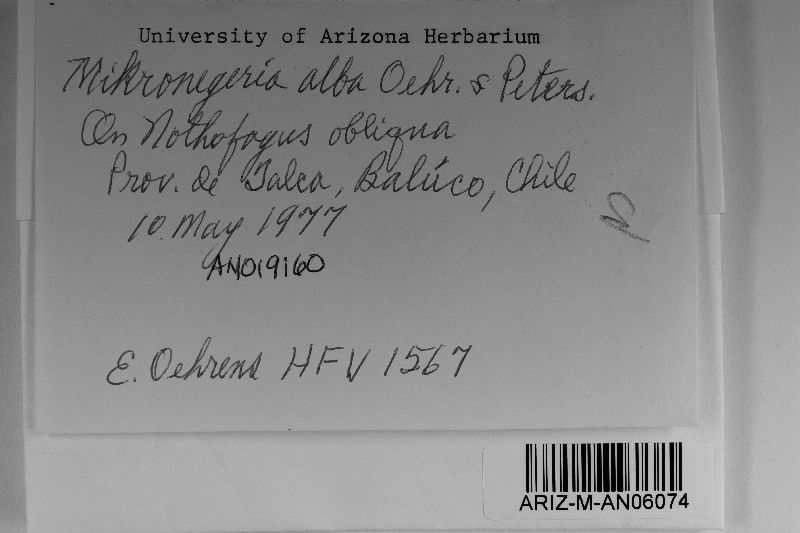 University of Arizona Herbarium
Mikronegeria alba Oehr. & Peters.
On Nothofagus obliqua
Prov. de Talca, Balúco, Chile
10 May 1977
AN019160
E. Oehrens HFV 1567
ARIZ-M-AN06074